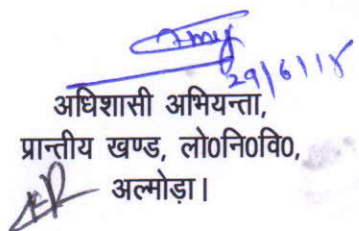 29/6/18
अधिशासी अभियन्ता,
प्रान्तीय खण्ड, लो0नि0वि0,
अल्मोड़ा।